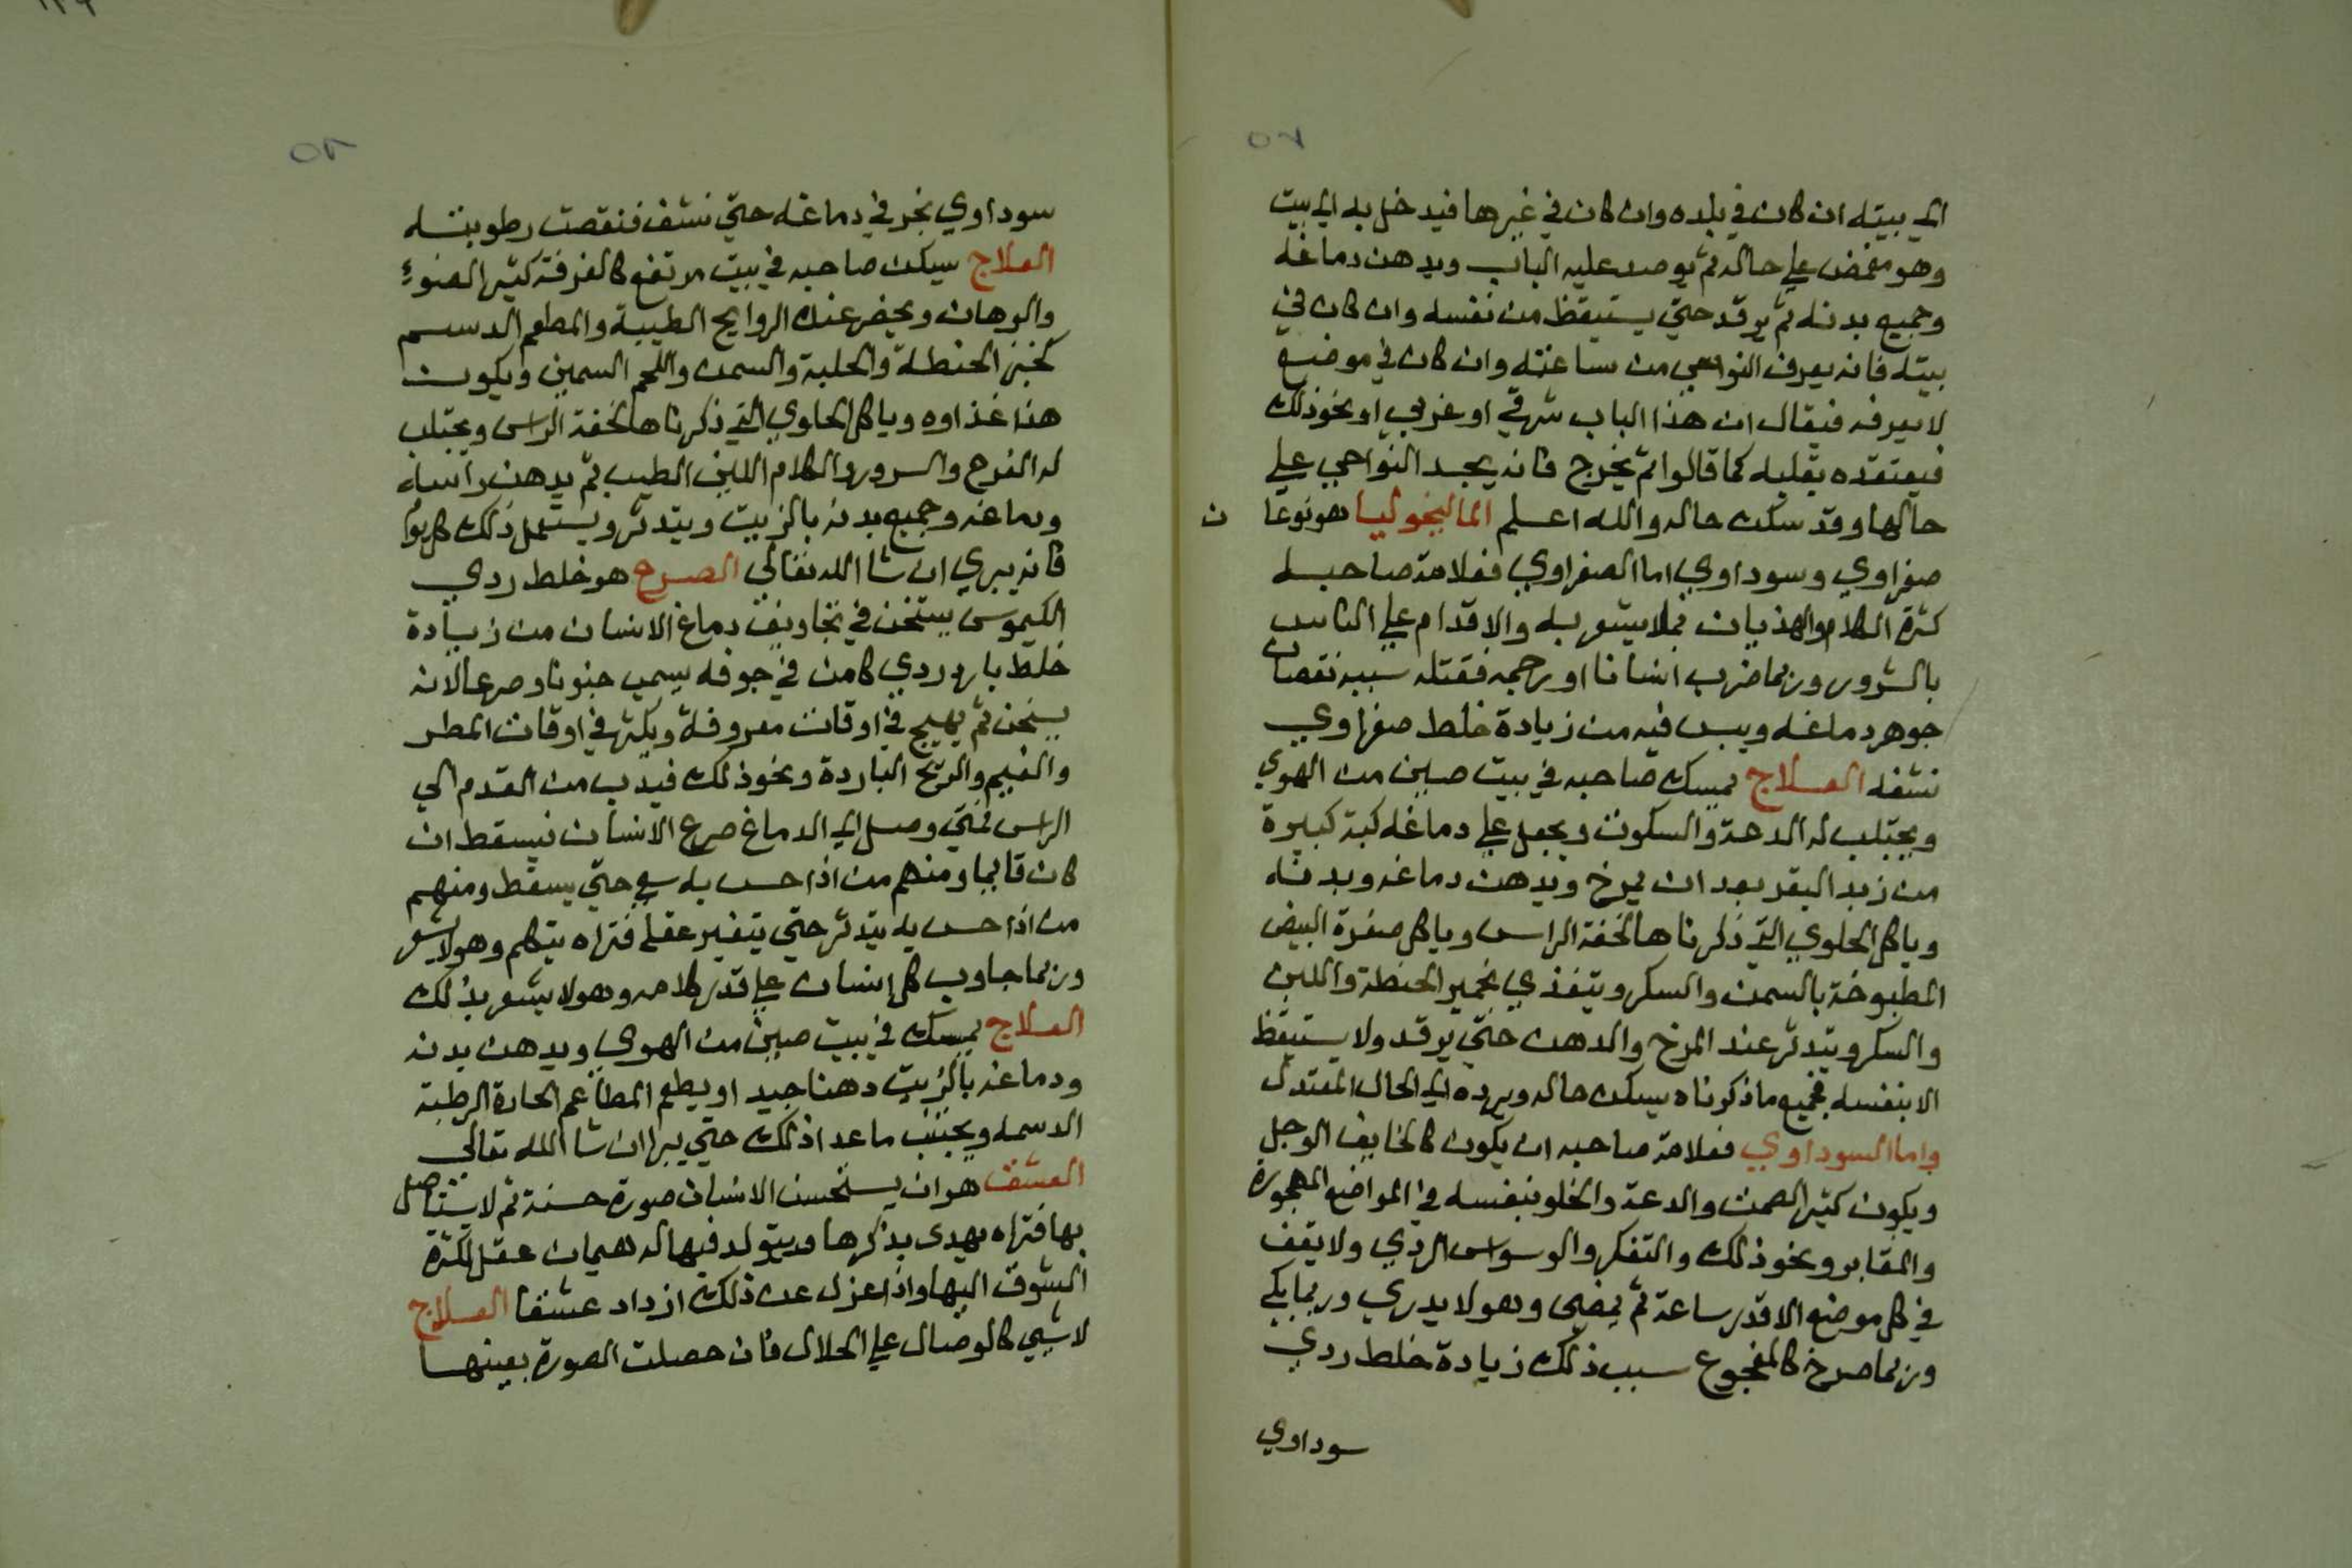 ٥٢
الى بيته ان كان في بلده وان كان في غيرها فيدخل به الى بيت
وهو مغمض على حاله ثم يوصد عليه الباب ويدهن دماغه
وجميع بدنه ثم يرقد حتي يستيقظ من نفسه وان كان في
بيته فانه يعرف النواحي من ساعته وان كان في موضع
لا يعرفه فيقال ان هذا الباب شرقي او غربي او نحو ذلك
فيعتقده بقلبه كما قالوا ثم يخرج فانه يجد النواحي علي
حالها وقد سكن حاله والله اعلم الماليخوليا هو نوعا ن
صفراوي وسوداوي اما الصفراوي فعلامة صاحبه
كثرة الكلام والهذيان بما لا يشعر به والاقدام علي الناس
بالشرور وربما ضرب انسانا او رجمه فقتله سببه نقصان
جوهر دماغه ويبس فيه من زيادة خلط صفراوي
نشفه العلاج يمسك صاحبه في بيت صين من الهوي
ويجتلب له الدعة والسكون ويجعل علي دماغه كبة كبيرة
من زبد البقر بعد ان يمرخ ويدهن دماغه وبدنه
وياكل الحلوي التي ذكرناها لخفة الراس وياكل صفرة البيض
المطبوخة بالسمن والسكر ويتغذي بخمير الحنطة واللبن
والسكر ويتدثر عند المرخ والدهن حتي يرقد ولا يستيقظ
الا بنفسه فجميع ما ذكرناه يسكن حاله ويرده الى الحال المعتدل
واما السوداوي فعلامة صاحبه ان يكون كالخايف الوجل
ويكون كثير الصمت والدعة والخلو بنفسه في المواضع المهجورة
والمقابر ونحو ذلك والتفكر والوسواس الردي ولا يقف
في كل موضع الا قدر ساعة ثم يمضي وهو لا يدري وربما بكي
وربما صرخ كالمفجوع سبب ذلك زيادة خلط ردي
سوداوي
٥٢
سوداوي بخر في دماغه حتي نشف فنقصت رطوبته
العلاج يسكن صاحبه في بيت مرتفع كالغرفة كثير الضوء
والوهان ويحضر عنده الروايح الطيبة والمطعم الدسم
كخبز الحنطة والحلبة والسمن واللحم السمين ويكون
هذا غذاوه وياكل الحلوي التي ذكرناها لخفة الراس ويجتلب
له الفرح والسرور والكلام اللين الطيب ثم يدهن راسه
ودماغه وجميع بدنه بالزيت ويتدثر ويستعمل ذلك كل يوم
فانه يبري ان شا الله تعالي الصرع هو خلط ردي
الكيموس يستخن في تجاويف دماغ الانسان من زيادة
خلط بارد ردي كامن في جوفه يسمي جنونا وصرعا لانه
يسخن ثم يهيج في اوقات معروفة ويكثر في اوقات المطر
والغيم والريح الباردة ونحو ذلك فيدب من القدم الي
الراس فمتي وصل الى الدماغ صرع الانسان فيسقط ان
كان قايما ومنهم من اذا حس به سعى حتي يسقط ومنهم
من اذا حس به يتدثر حتي يتغير عقله فتراه يتكلم وهو لا يشعر
وربما جاوب كل انسان علي قدر كلامه وهو لا يشعر بذلك
العلاج يمسك في بيت صين من الهوي ويدهن بدنه
ودماغه بالزيت دهنا جيدا ويطعم المطاعم الحارة الرطبة
الدسمه ويجتنب ما عدا ذلك حتي يبرا ان شا الله تعالي
العشق هو ان يستحسن الانسان صورة حسنة ثم لا يتصل
بها فتراه يهدى بذكرها ويتولد فيها له هيمان عقل لكثرة
الشوق اليها واذا عزل عن ذلك ازداد عشقا العلاج
لا شيي كالوصال علي الحلال فان حصلت الصورة بعينها